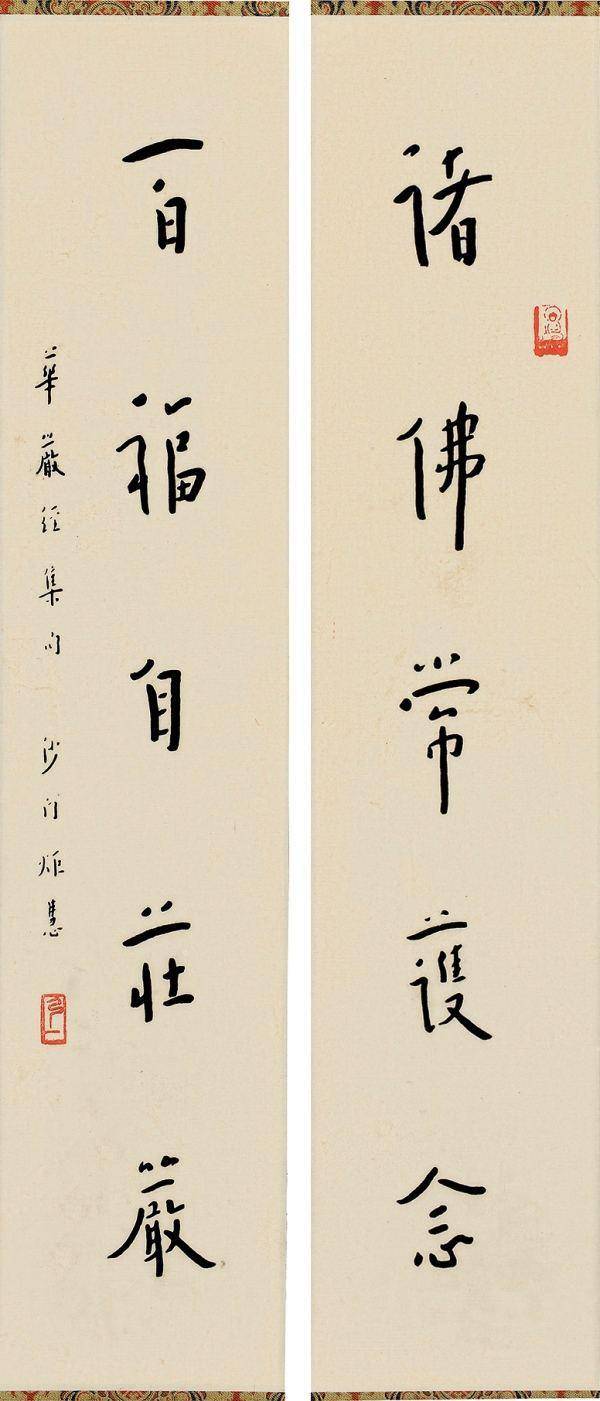 諸佛常護念
百福自莊嚴
華嚴經集句 沙門炬慧
弘一